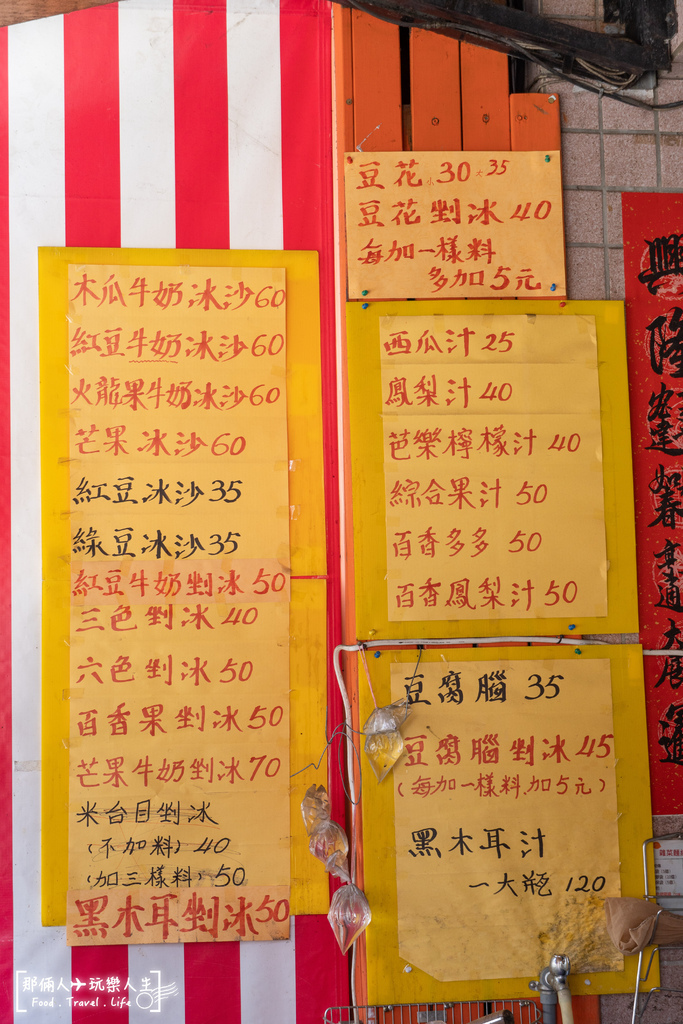 木瓜牛奶冰沙60
紅豆牛奶冰沙60
火龍果牛奶冰沙60
芒果冰沙60
紅豆冰沙35
綠豆冰沙35
紅豆牛奶剉冰50
三色剉冰40
六色剉冰50
百香果剉冰50
芒果牛奶剉冰70
米台目剉冰
(不加料) 40
(加三樣料) 50
黑木耳剉冰50
豆花小30大35
豆花剉冰40
每加一樣料
多加5元
西瓜汁25
鳳梨汁40
芭樂檸檬汁40
綜合果汁50
百香多多50
百香鳳梨汁50
豆腐腦35
豆腐腦剉冰45
(每加一樣料.加5元)
黑木耳汁
一大瓶120
興隆發達如春亨通大展鴻運
那倆人玩樂人生
Food . Travel . Life